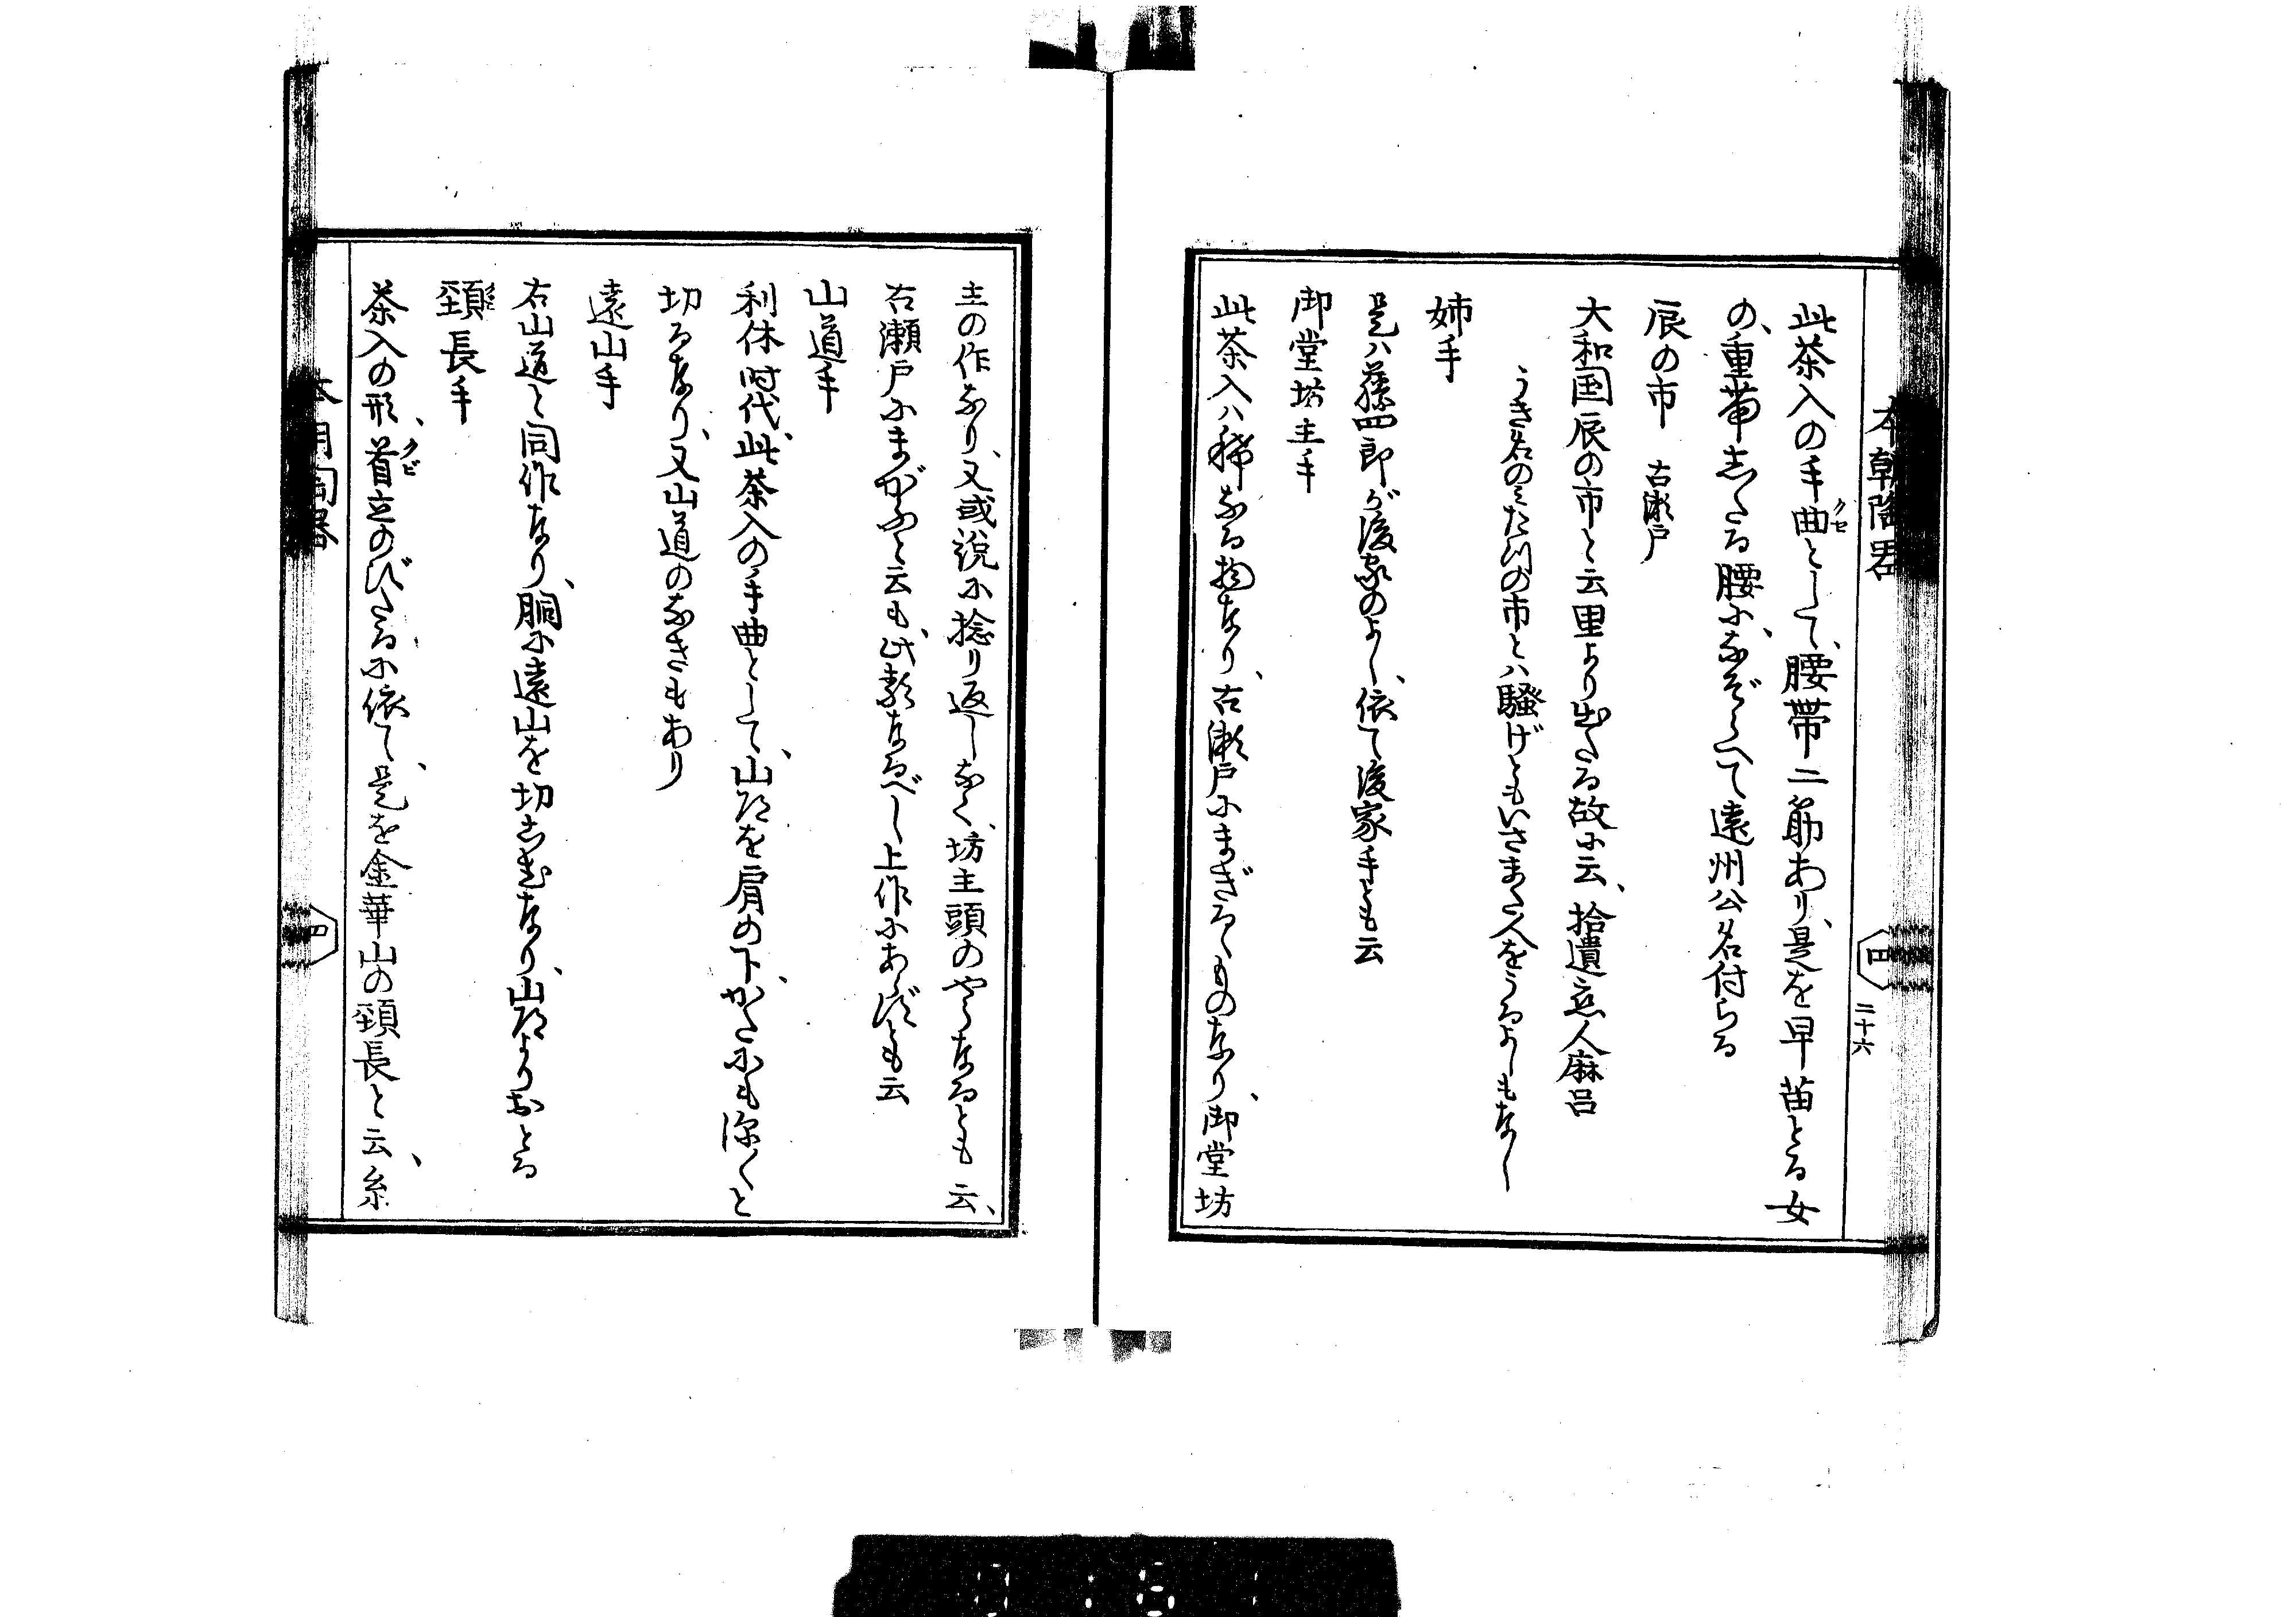 本朝陶器
四
二十六
此茶入の手曲クセとして、腰帯二筋あり、是を早苗とる女
の、重帯志たる腰に、なぞらへて遠州公名付らる
辰の市 古瀬戸
大和国辰の市と云里より出たる故に云、拾遺恋人麻呂
うき名のミたつの市とハ騒げともいさまた人をうるよしもなし
姉手
是ハ藤四郎が後家のよし、依て後家手とも云
御堂坊主手
此茶入ハ稀なる物なり、古瀬戸にまぎるゝものなり、御堂坊
主の作なり、又或説に捻り返しなく、坊主頭のやうなるとも云、
古瀬戸にまがふと云も、此類なるべし上作にあらずとも云
山道手
利休時代、此茶入の手曲として、山道を肩の下、かたにも深くと
切るなり、又山道のなきもあり
遠山手
右山道と同作なり、胴に遠山を切こむなり、山道よりおとる
頸長手
茶入の形、首クビ立のびたるに依て、是を金華山の頸長と云、糸
四